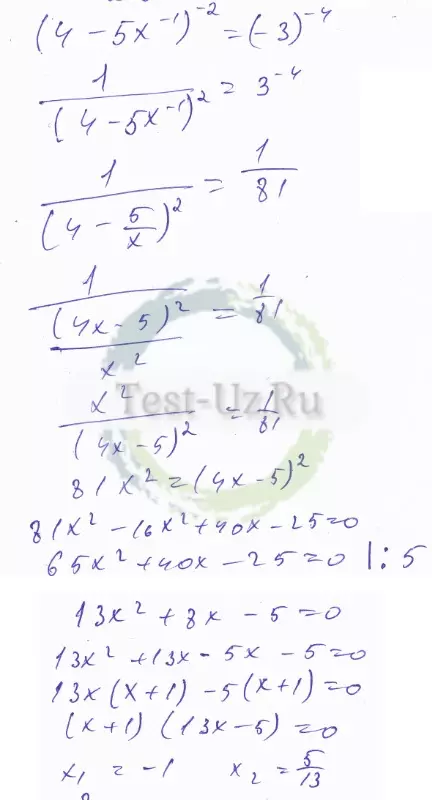 (4 - 5x⁻¹)⁻² = (-3)⁻⁴
1/(4 - 5x⁻¹)² = 3⁻⁴
1/(4 - 5/x)² = 1/81
1/((4x - 5)²/x²) = 1/81
Test-Uz.Ru
x²/(4x - 5)² = 1/81
81x² = (4x - 5)²
81x² - 16x² + 40x - 25 = 0
65x² + 40x - 25 = 0 |: 5
13x² + 8x - 5 = 0
13x² + 13x - 5x - 5 = 0
13x(x + 1) - 5(x + 1) = 0
(x + 1) (13x - 5) = 0
x₁ = -1 x₂ = 5/13